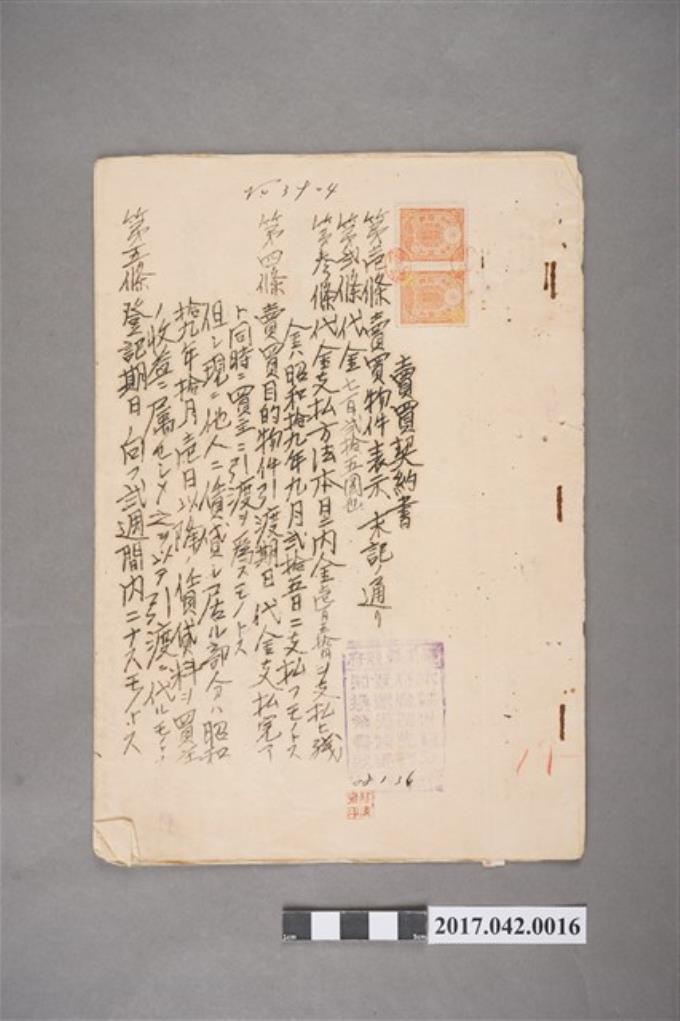 No 39-4
賣買契約書
第壱條 賣買物件表示 末記ノ通リ
第弐條 代金 七百弐拾五圓也
第参條 代金支払方法 本日ニ内金壱百五拾円ヲ支払ヒ残
金ハ昭和拾九年九月弐拾五日ニ支払フモノトス
第四條 賣買目的物件引渡期日 代金支払完了
ト同時ニ買主ニ引渡ヲ為スモノトス
但シ現ニ他人ニ賃貸シ居ル部分ハ昭和
拾九年拾月壱日以降ノ賃貸料ヲ買主
ノ収益ニ属セシメ之ヲ以テ引渡ニ代ルモノトス
第五條 登記期日 向フ弐週間内ニナスモノトス
08136
2017.042.0016